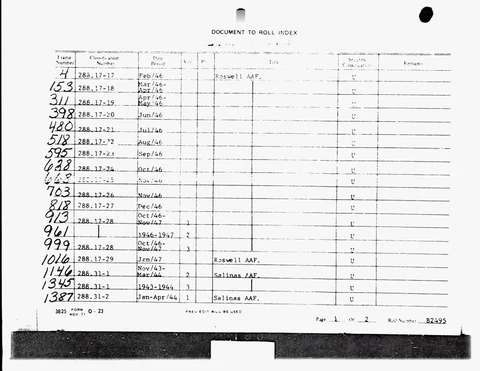 DOCUMENT TO ROLL INDEX
Frame Number Classification Number Date Period Vol Pt Title Security Classification Remarks
4 288.17-17 Feb/46 Roswell AAF. U
153 288.17-18 Mar/46- Apr/46 U
311 288.17-19 Apr/46- May/46 U
398 288.17-20 Jun/46 U
480 288.17-21 Jul/46 U
518 288.17-22 Aug/46 U
595 288.17-23 Sep/46 U
628 288.17-24 Oct/46 U
663 288.17-25 Nov/46 U
703 288.17-26 Nov/46 U
818 288.17-27 Dec/46 U
913 288.17-28 Oct/46- Nov/47 1 U
961 1946-1947 2 U
999 288.17-28 Oct/46- Nov/47 3 U
1016 288.17-29 Jan/47 Roswell AAF. U
1146 288.31-1 Nov/43- Mar/44 2 Salinas AAF. U
1345 288.31-1 1943-1944 3 U
1387 288.31-2 Jan-Apr/44 1 Salinas AAF. U
3825 FORM NOV 71 0-23 PREV EDIT WILL BE USED Page 1 Of 2 Roll Number B2495